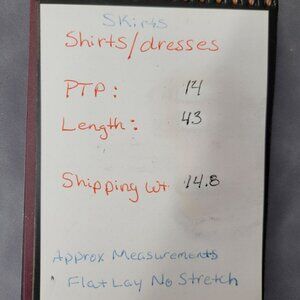 Skirts
Shirts/dresses
PTP: 14
Length: 43
Shipping wt 14.8
Approx Measurements
Flat Lay No Stretch